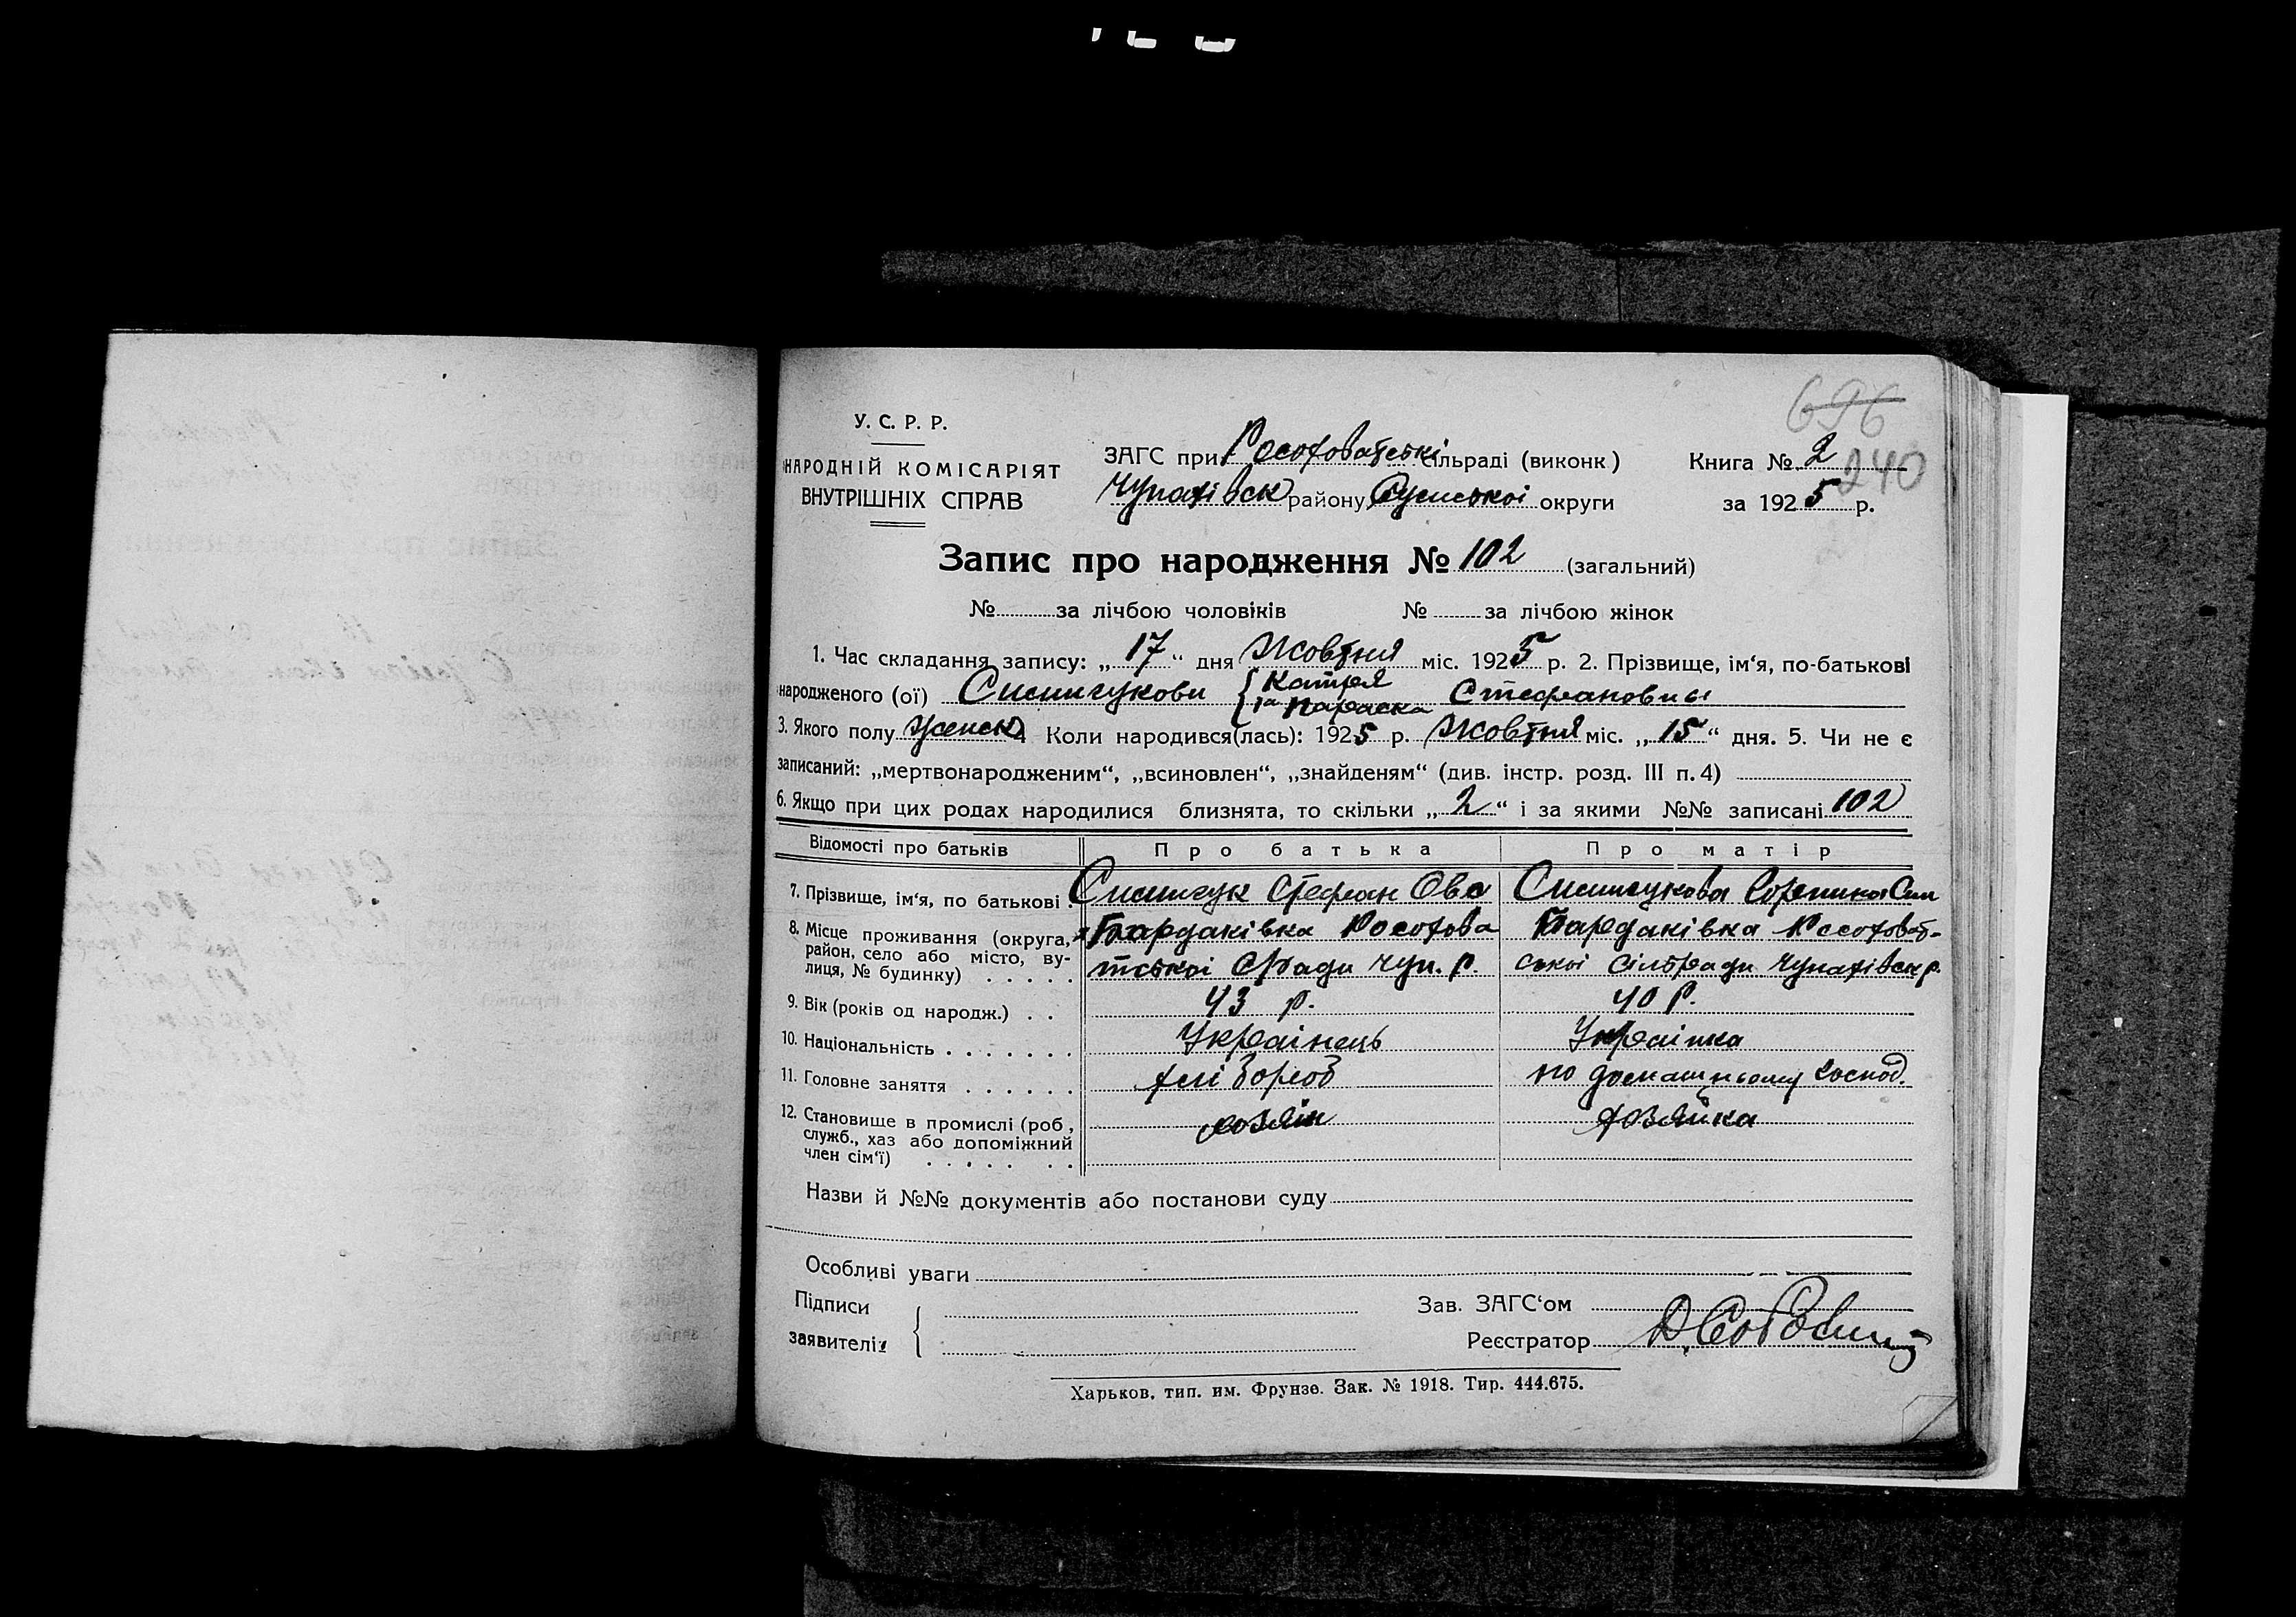 696
240
У. С. Р. Р.
НАРОДНІЙ КОМІСАРІЯТ
ВНУТРІШНІХ СПРАВ
ЗАГС при Росоховатські сільраді (виконк.)
Чупахівськ району, Сумської округи
Книга № 2
за 1925 р.
Запис про народження № 102 (загальний)
№ за лічбою чоловіків № за лічбою жінок
1. Час складання запису: „17“ дня Жовтня міс. 1925 р. 2. Прізвище, ім‘я, по-батькові
народженого (ої) { Катря та Параска Стефановны
3. Якого полу Женск 4 Коли народився(лась): 1925 р. Жовтня міс. „15“ дня. 5. Чи не є
записаний: „мертвонародженим“, „всиновлен“, „знайденям“ (див. інстр. розд. III п. 4)
6. Якщо при цих родах народилися близнята, то скільки „2“ і за якими №№ записані 102
Відомості про батьків Про батька Про матір
7. Прізвище, ім‘я, по батькові . Стефан Овс
8. Місце проживання (округа, Бардаківка Росохова Бардаківка Росоховат-
район, село або місто, ву- тської Сради Чуп. р. ської сільради Чупахівськ р.
лиця, № будинку) . . . . .
9. Вік (років од народж.) . . 43 р. 40 р.
10. Національність . . . . . . . Українець Українка
11. Головне заняття . . . . . . хлібороб по домашньому господ.
12. Становище в промислі (роб, хозяїн хозяйка
служб., хаз або допоміжний
член сім‘ї) . . . . . . .
Назви й №№ документів або постанови суду
Особливі уваги
Підписи
заявителів
Зав. ЗАГС‘ом
Реєстратор
Харьков, тип. им. Фрунзе. Зак. № 1918. Тир. 444.675.